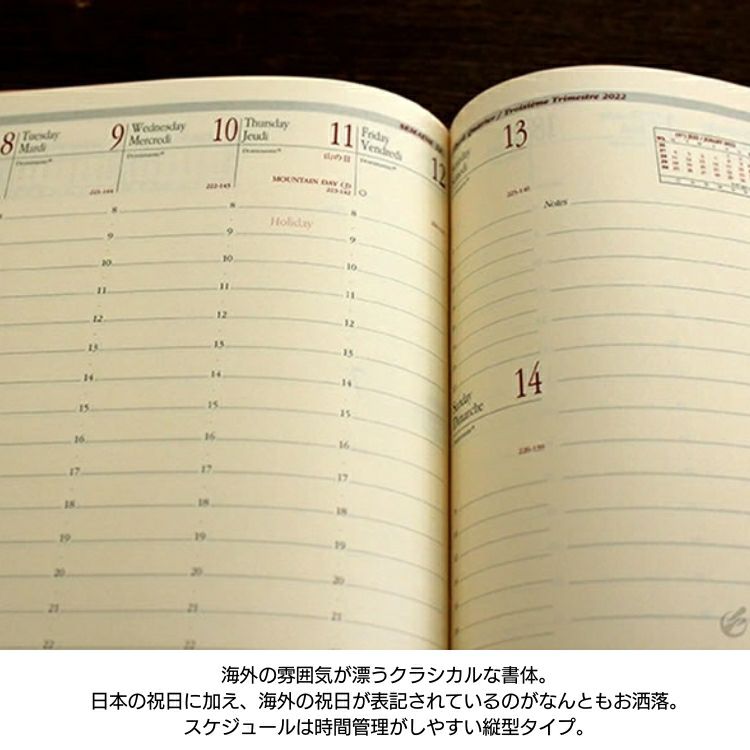 8
Tuesday 9
Mardi
Dominante
Wednesday 10
Mercredi
Dominante
Thursday 11
Jeudi
Dominante
山の日
MOUNTAIN DAY CD
Friday 12
Vendredi
Dominante
SEMAINE
221-144
222-143
223-142
8 8 8
Holiday
9 9 9
10 10 10
11 11 11
12 12 12
13 13 13
14 14 14
15 15 15
16 16 16
17 17 17
18 18 18
19 19 19
20 20 20
21 21 21
22 22
Quarter / Troisième Trimestre 2022
13
225-140
Notes
14
Dimanche
226-139
海外の雰囲気が漂うクラシカルな書体。
日本の祝日に加え、海外の祝日が表記されているのがなんともお洒落。
スケジュールは時間管理がしやすい縦型タイプ。